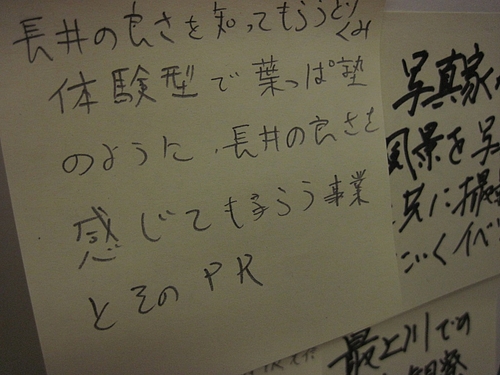 長井の良さを知ってもらうとりくみ
体験型で葉っぱ塾
のように、長井の良さを
感じてもらう事業
とそのPR
写真家
風景を写
共に撮
いくイベ
最上川での